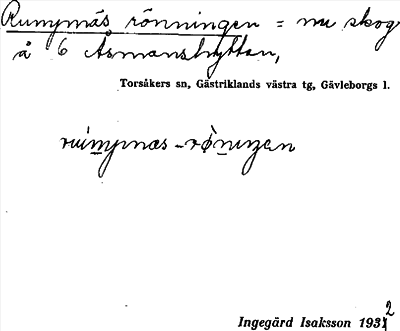 Rumpmäs rönningen = nu skog
å 6 Åsmanshyttan,
Torsåkers sn, Gästriklands västra tg, Gävleborgs l.
Ingegärd Isaksson 1932